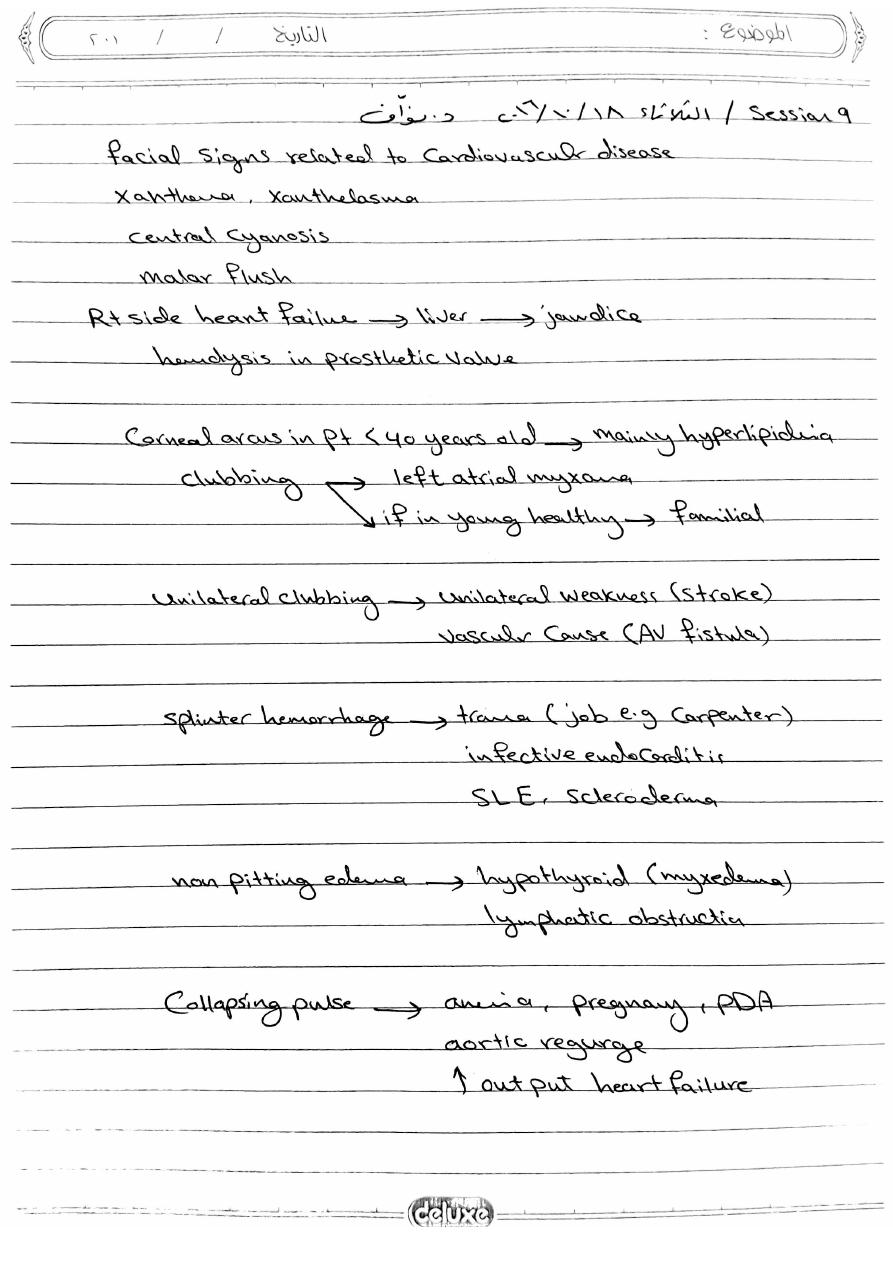 الموضوع : التاريخ / / ٢٠١
Session 9 / الثلاثاء ١٨/١٠/٢٠١٦ د. نوّاف
facial signs related to Cardiovasculr disease
Xanthoma, Xanthelasma
central Cyanosis
malar flush
Rt side heart failure → liver → jawdice
hemolysis in prosthetic valve
Corneal arcus in pt < 40 years old → mainly hyperlipidemia
clubbing → left atrial myxoma
↘ if in young healthy → familial
Unilateral clubbing → unilateral weakness (stroke)
vascular Cause (AV fistula)
splinter hemorrhage → trama (job e.g Carpenter)
infective endocarditis
SLE, Scleroderma
non pitting edema → hypothyroid (myxedema)
lymphatic obstruction
Collapsing pulse → anemia, pregnancy, PDA
aortic regurge
↑ output heart failure
deluxe